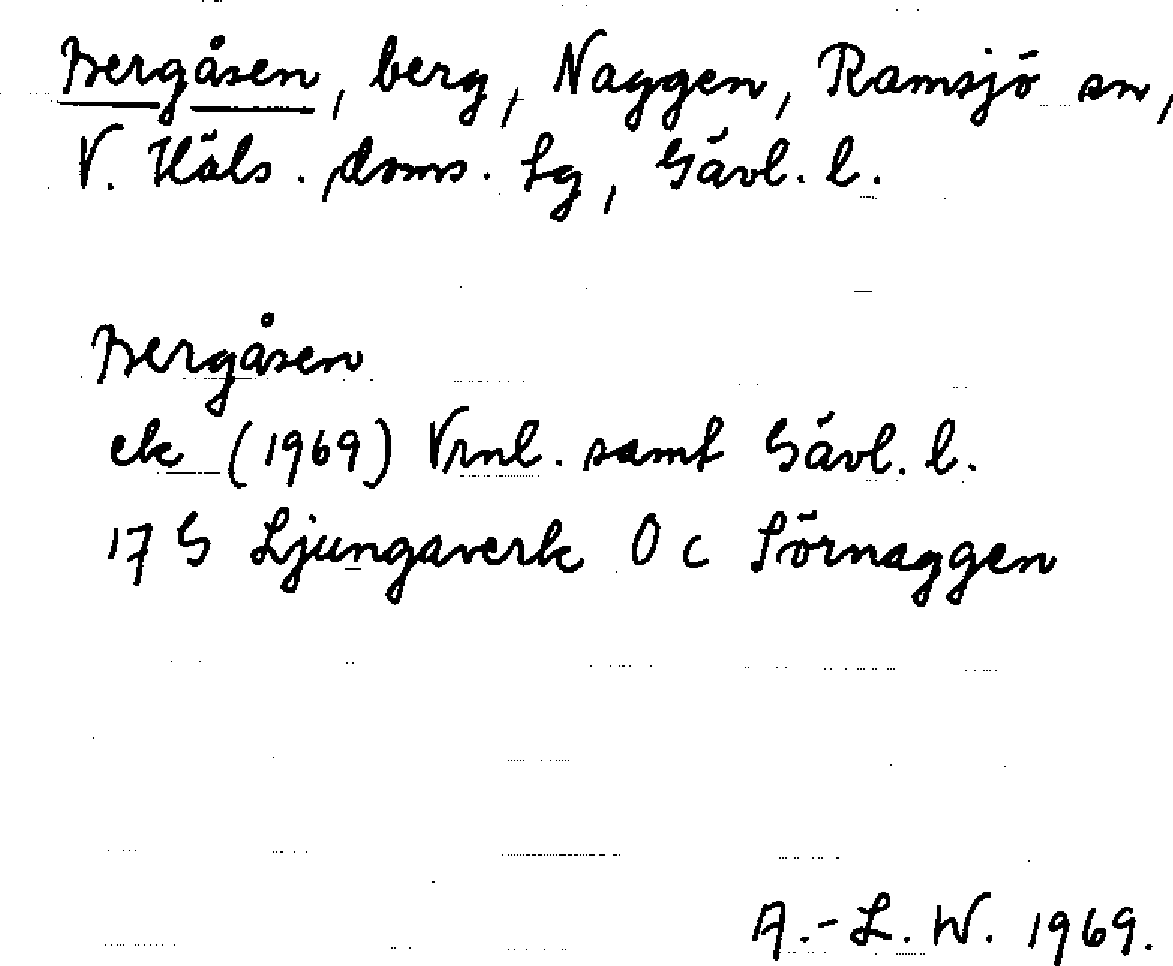 Bergåsen, berg, Naggen, Ramsjö sn,
V. Häls. doms. lg, Gävl. l.
Bergåsen
ek (1969) Vrnl. samt Gävl. l.
17 G Ljungaverk 0 c Sörnaggen
A.-L. W. 1969.